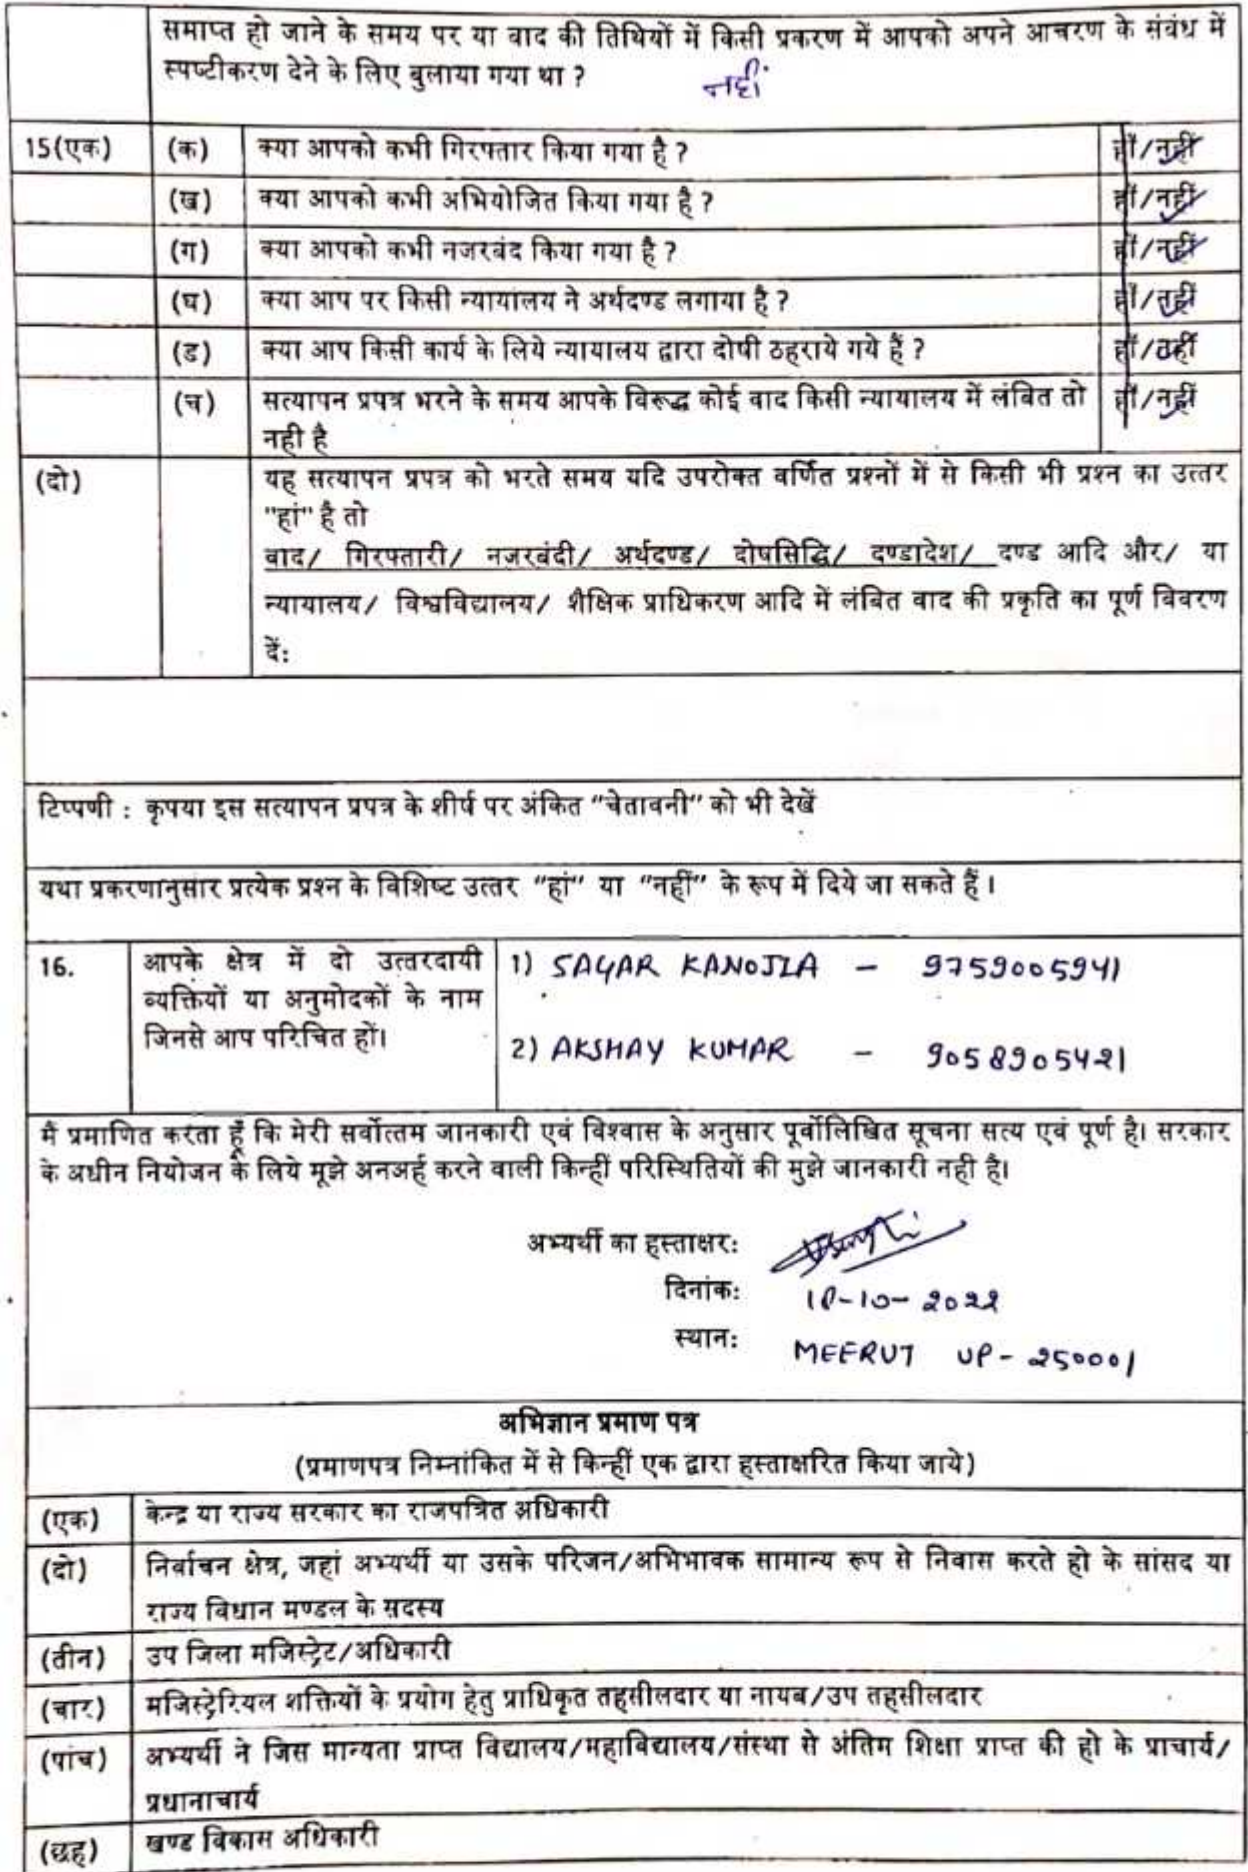 समाप्त हो जाने के समय पर या वाद की तिथियों में किसी प्रकरण में आपको अपने आचरण के संबंध में
स्पष्टीकरण देने के लिए बुलाया गया था ?
नहीं
15(एक) (क) क्या आपको कभी गिरफ्तार किया गया है ? हाँ/नहीं
(ख) क्या आपको कभी अभियोजित किया गया है ? हाँ/नहीं
(ग) क्या आपको कभी नजरबंद किया गया है ? हाँ/नहीं
(घ) क्या आप पर किसी न्यायालय ने अर्थदण्ड लगाया है ? हाँ/नहीं
(ड) क्या आप किसी कार्य के लिये न्यायालय द्वारा दोषी ठहराये गये हैं ? हाँ/नहीं
(च) सत्यापन प्रपत्र भरने के समय आपके विरूद्ध कोई वाद किसी न्यायालय में लंबित तो हाँ/नहीं
नही है
(दो) यह सत्यापन प्रपत्र को भरते समय यदि उपरोक्त वर्णित प्रश्नों में से किसी भी प्रश्न का उत्तर
"हां" है तो
वाद/ गिरफ्तारी/ नजरबंदी/ अर्थदण्ड/ दोषसिद्धि/ दण्डादेश/ दण्ड आदि और/ या
न्यायालय/ विश्वविद्यालय/ शैक्षिक प्राधिकरण आदि में लंबित वाद की प्रकृति का पूर्ण विवरण
दें:
टिप्पणी : कृपया इस सत्यापन प्रपत्र के शीर्ष पर अंकित "चेतावनी" को भी देखें
यथा प्रकरणानुसार प्रत्येक प्रश्न के विशिष्ट उत्तर "हां" या "नहीं" के रूप में दिये जा सकते हैं ।
16. आपके क्षेत्र में दो उत्तरदायी
व्यक्तियों या अनुमोदकों के नाम
जिनसे आप परिचित हों।
1) SAGAR KANOJIA - 9759005941
2) AKSHAY KUMAR - 9058905421
मैं प्रमाणित करता हूँ कि मेरी सर्वोत्तम जानकारी एवं विश्वास के अनुसार पूर्वोलिखित सूचना सत्य एवं पूर्ण है। सरकार
के अधीन नियोजन के लिये मूझे अनअर्ह करने वाली किन्हीं परिस्थितियों की मुझे जानकारी नही है।
अभ्यर्थी का हस्ताक्षर:
दिनांक: 18-10-2022
स्थान: MEERUT UP - 250001
अभिज्ञान प्रमाण पत्र
(प्रमाणपत्र निम्नांकित में से किन्हीं एक द्वारा हस्ताक्षरित किया जाये)
(एक) केन्द्र या राज्य सरकार का राजपत्रित अधिकारी
(दो) निर्वाचन क्षेत्र, जहां अभ्यर्थी या उसके परिजन/अभिभावक सामान्य रूप से निवास करते हो के सांसद या
राज्य विधान मण्डल के सदस्य
(तीन) उप जिला मजिस्ट्रेट/अधिकारी
(चार) मजिस्ट्रेरियल शक्तियों के प्रयोग हेतु प्राधिकृत तहसीलदार या नायब/उप तहसीलदार
(पांच) अभ्यर्थी ने जिस मान्यता प्राप्त विद्यालय/महाविद्यालय/संस्था से अंतिम शिक्षा प्राप्त की हो के प्राचार्य/
प्रधानाचार्य
(छह) खण्ड विकास अधिकारी